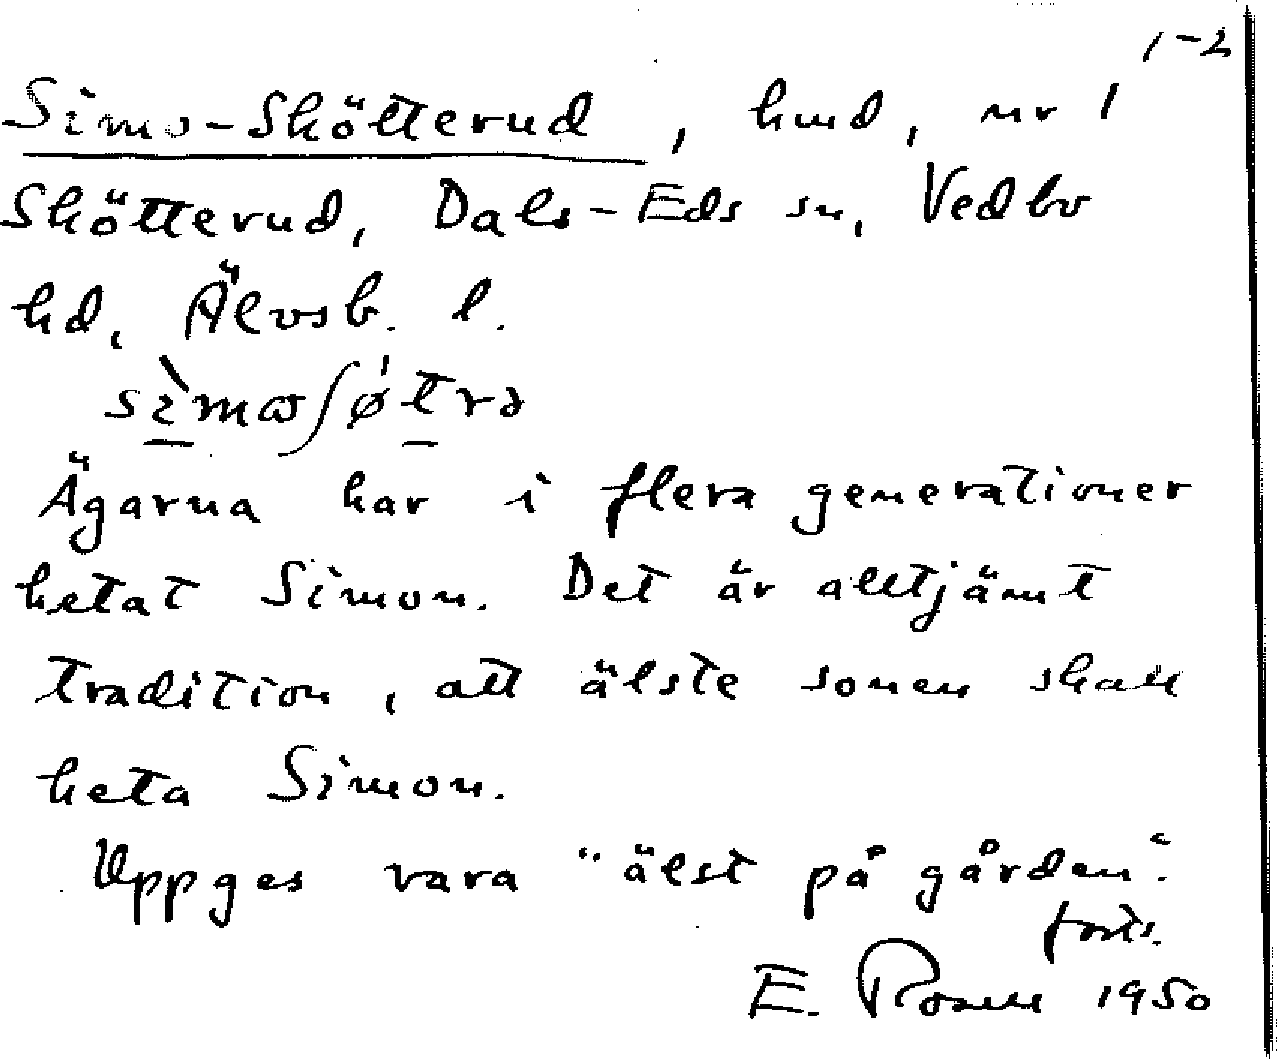 1-2
Simo-Skötterud, hmd, nr 1
Skötterud, Dals-Eds sn, Vedbo
hd, Älvsb. l.
Ägarna har i flera generationer
hetat Simon. Det är alltjämt
tradition, att älste sonen skall
heta Simon.
Uppges vara "älst på gården".
forts.
E. Rosell 1950